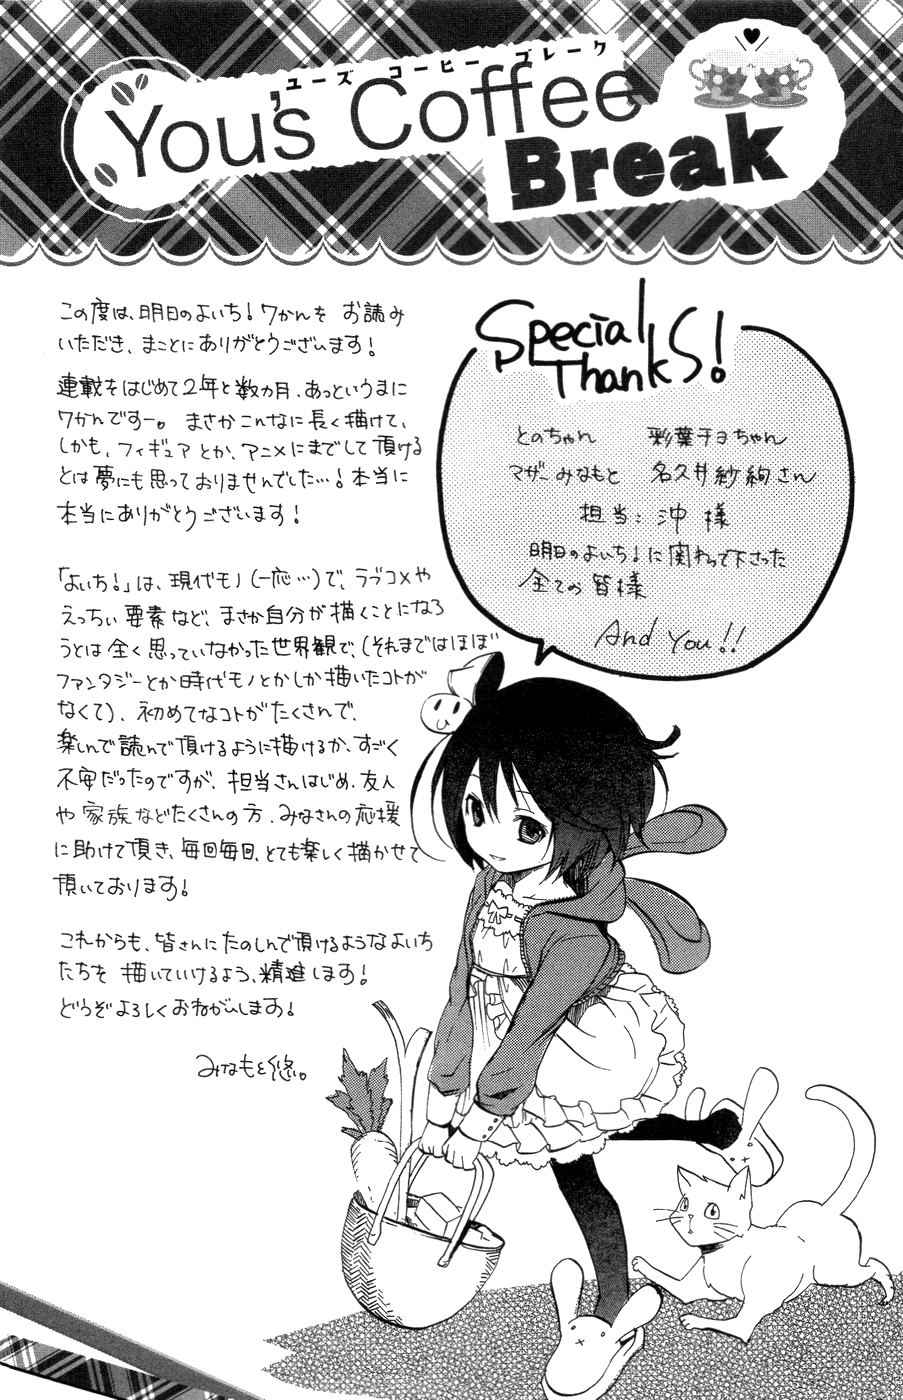 ユーズ コーヒー ブレーク
You's Coffee
Break
この度は、明日のよいち！7かんを お読み
いただき、まことにありがとうございます！
連載をはじめて2年と数ヵ月、あっというまに
7かんですー。まさかこんなに長く描けて、
しかも、フィギュアとか、アニメにまでして頂ける
とは夢にも思っておりませんでした…！本当に
本当にありがとうございます！
「よいち！」は、現代モノ（一応…）で、ラブコメや
えっちぃ要素など、まさか自分が描くことになろ
うとは全く思っていなかった世界観で、（それまではほぼ
ファンタジーとか時代モノとかしか描いたコトが
なくて）、初めてなコトがたくさんで、
楽しんで読んで頂けるように描けるか、すごく
不安だったのですが、担当さんはじめ、友人
や家族などたくさんの方、みなさんの応援
に助けて頂き、毎回毎回、とても楽しく描かせて
頂いております！
これからも、皆さんにたのしんで頂けるようなよいち
たちを 描いていけるよう、精進します！
どうぞよろしくおねがいします！
みなもと悠。
Special
Thanks!
とのちゃん 彩葉チヨちゃん
マザーみなもと 名久井紗絢さん
担当：沖 様
明日のよいち！に関わって下さった
全ての皆様
And You!!